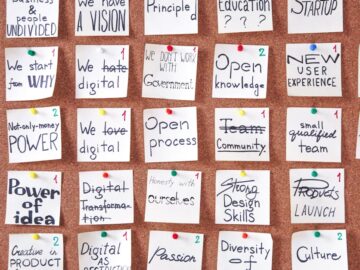 Business
& people
UNDIVIDED
We have
a VISION
Principled
Education
? ? ?
STARTUP
1
We start
from WHY
1
We hate
digital
1
WE DON'T WORK
WITH
Government
2
Open
knowledge
2
NEW
USER
EXPERIENCE
2
Not-only-money
POWER
1
We love
digital
1
Open
process
1
Team
Community
1
small
qualified
team
1
Power of
idea
1
Digital
Transforma-
tion
1
Honesty with
ourselves
2
Strong
Design
Skills
1
Products
LAUNCH
2
Creative in
PRODUCT
1
Digital
AS
1
Passion
2
Diversity
of
2
Culture